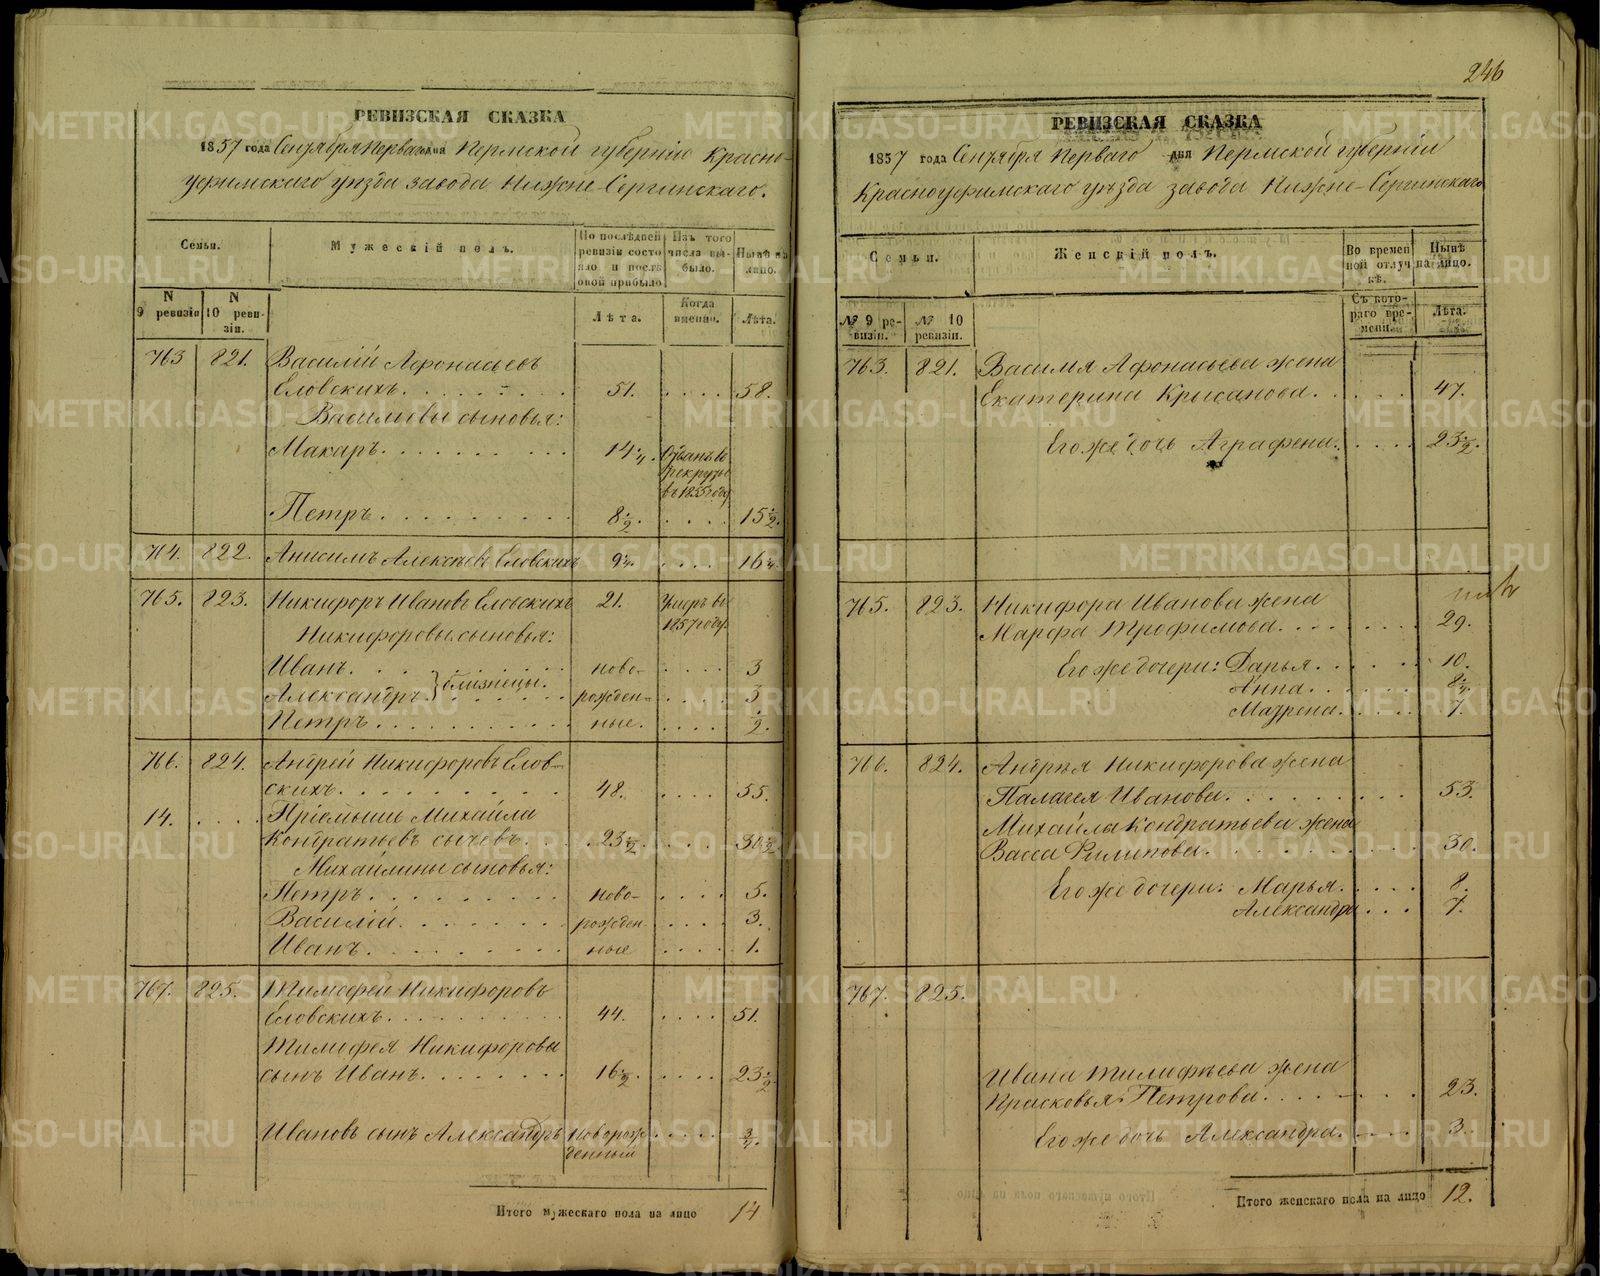 РЕВИЗСКАЯ СКАЗКА
1857 года Сентября Перваго дня Пермской губерніи Красно-
уфимскаго уѣзда завода Нижне-Сергинскаго.
Семьи.
Мужескій полъ.
По послѣдней ревизіи состояло и послѣ оной прибыло
Изъ того числа выбыло.
Нынѣ на лицо.
N 9 ревизіи
N 10 ревизіи.
Лѣта.
Когда именно.
Лѣта.
763 821. Василій Афонасьевъ
Еловскихъ. 51. 58.
Васильевы сыновья:
Макаръ. 14 1/4. Отданъ въ рекруты въ 1855 году
Петръ. 8 1/2. 15 1/2.
764. 822. Анисимъ Алексѣевъ Еловскихъ 9 1/4. 16 1/4.
765. 823. Никифоръ Ивановъ Еловскихъ 21. Умеръ въ 1857 году.
Никифоровы сыновья:
Иванъ. ново- 3
Александръ. } близнецы. рожден- 3
Петръ. ные. 1/2.
766. 824. Андрей Никифоровъ Елов-
скихъ. 48. 55.
14. Пріемышъ Михайла
Кондратьевъ Сычевъ. 23 1/2. 30 1/2
Михайлины сыновья:
Петръ. ново- 5.
Василій. рожден- 3.
Иванъ. ные 1.
767. 825. Тимофей Никифоровъ
Еловскихъ. 44. 51.
Тимофея Никифорова
сынъ Иванъ. 16 1/2. 23 1/2
Ивановъ сынъ Александръ новорож- 3/4.
денный
Итого мужескаго пола на лицо 14
246
РЕВИЗСКАЯ СКАЗКА
1857 года Сентября Перваго дня Пермской губерніи
Красноуфимскаго уѣзда завода Нижне-Сергинскаго
Семьи.
Женскій полъ.
Во временной отлучкѣ.
Нынѣ на лицо.
№ 9 ревизіи.
№ 10 ревизіи.
Съ котораго времени.
Лѣта.
763. 821. Василія Афонасьева жена
Екатерина Крысанова. 47.
Его же дочь Аграфена. 23 1/2.
765. 823. Никифора Иванова жена
Марфа Трофимова. 29.
Его же дочери: Дарья. 10.
Анна. 8 1/4.
Мавра. 7.
766. 824. Андрея Никифорова жена
Палагея Иванова. 53.
Михайла Кондратьева жена
Васса Филипова. 30.
Его же дочери: Марья. 8.
Александра 7.
767. 825.
Ивана Тимофѣева жена
Прасковья Петрова. 23.
Его же дочь Александра. 3.
Итого женскаго пола на лицо 12.
METRIKI.GASO-URAL.RU